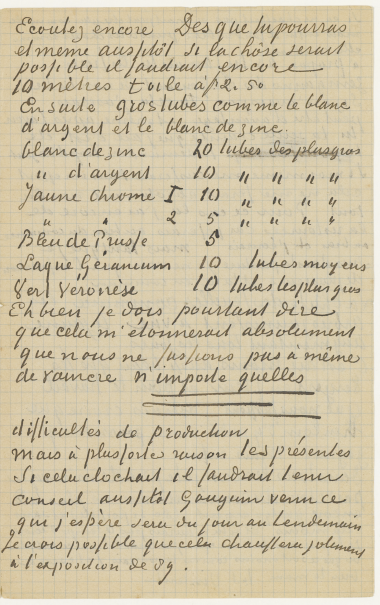 Ecoutez encore Des que tu pourras
et même aussitôt si la chôse serait
possible il faudrait encore
10 mètres toile à f 2.50
Ensuite gros tubes comme le blanc
d'argent et le blanc de zinc.
blanc de zinc 20 tubes des plus gros
" d'argent 10 " " " "
Jaune chrome I 10 " " " "
" " 2 5 " " " "
Bleu de Prusse 5
Laque Géranium 10 tubes moyens
Vert Véronèse 10 tubes les plus gros
Eh bien je dois pourtant dire
que cela m'étonnerait absolument
que nous ne fussions pas à même
de vaincre n'importe quelles
difficultés de production
mais à plus forte raison les présentes
Si cela clochait il faudrait tenir
conseil aussitôt Gauguin venu ce
qui j'espère sera du jour au lendemain
Je crois possible que cela chauffera joliment
à l'exposition de 89.